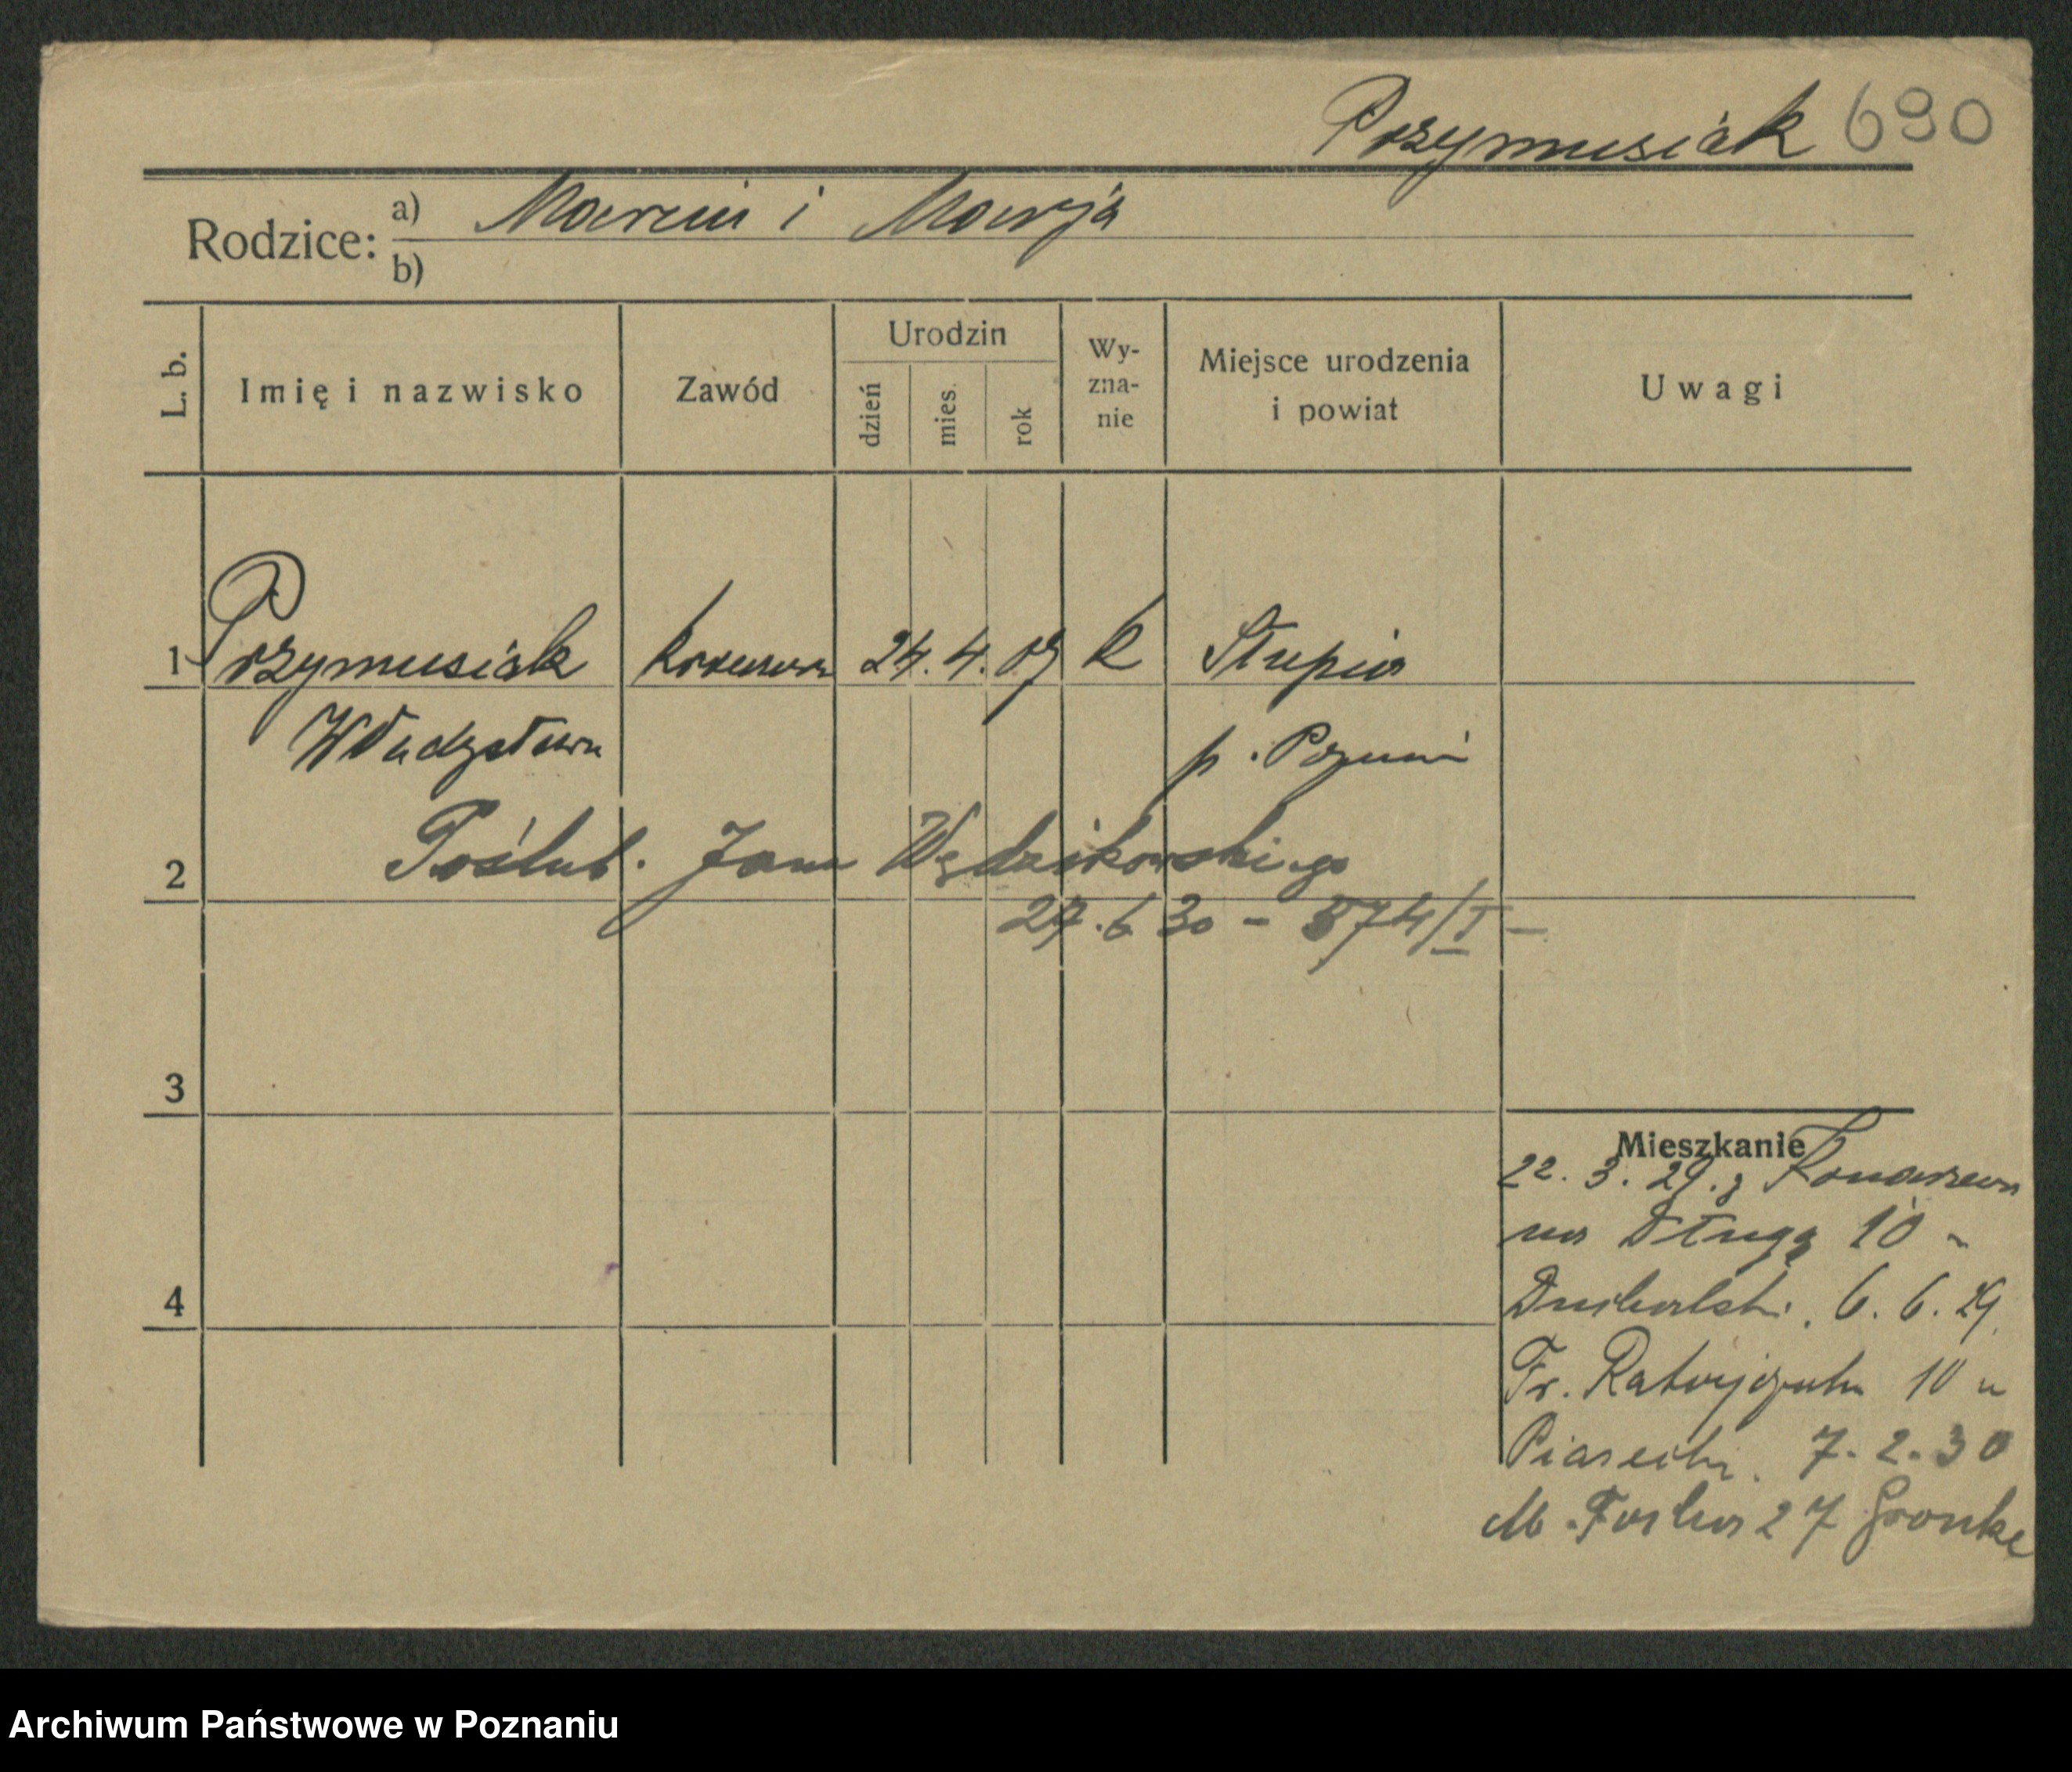 Przymusiak 690
Rodzice: a) Marcin i Marja
b)
L. b. Imię i nazwisko Zawód Urodzin dzień mies. rok Wy-zna-nie Miejsce urodzenia i powiat Uwagi
1 Przymusiak 24. 4. 09 k Słupia
Władysława p. Poznań
2 Poślub. Jana Wędzikowskiego
27.6.30 - 574/I -
3
Mieszkanie
22. 3. 29. z Konarzewa
na Długą 10 -
6. 6. 29.
4
Fr. Ratajczaka 10 u
Piasecki. 7. 2. 30
M. Focha 27 Gronke
Archiwum Państwowe w Poznaniu